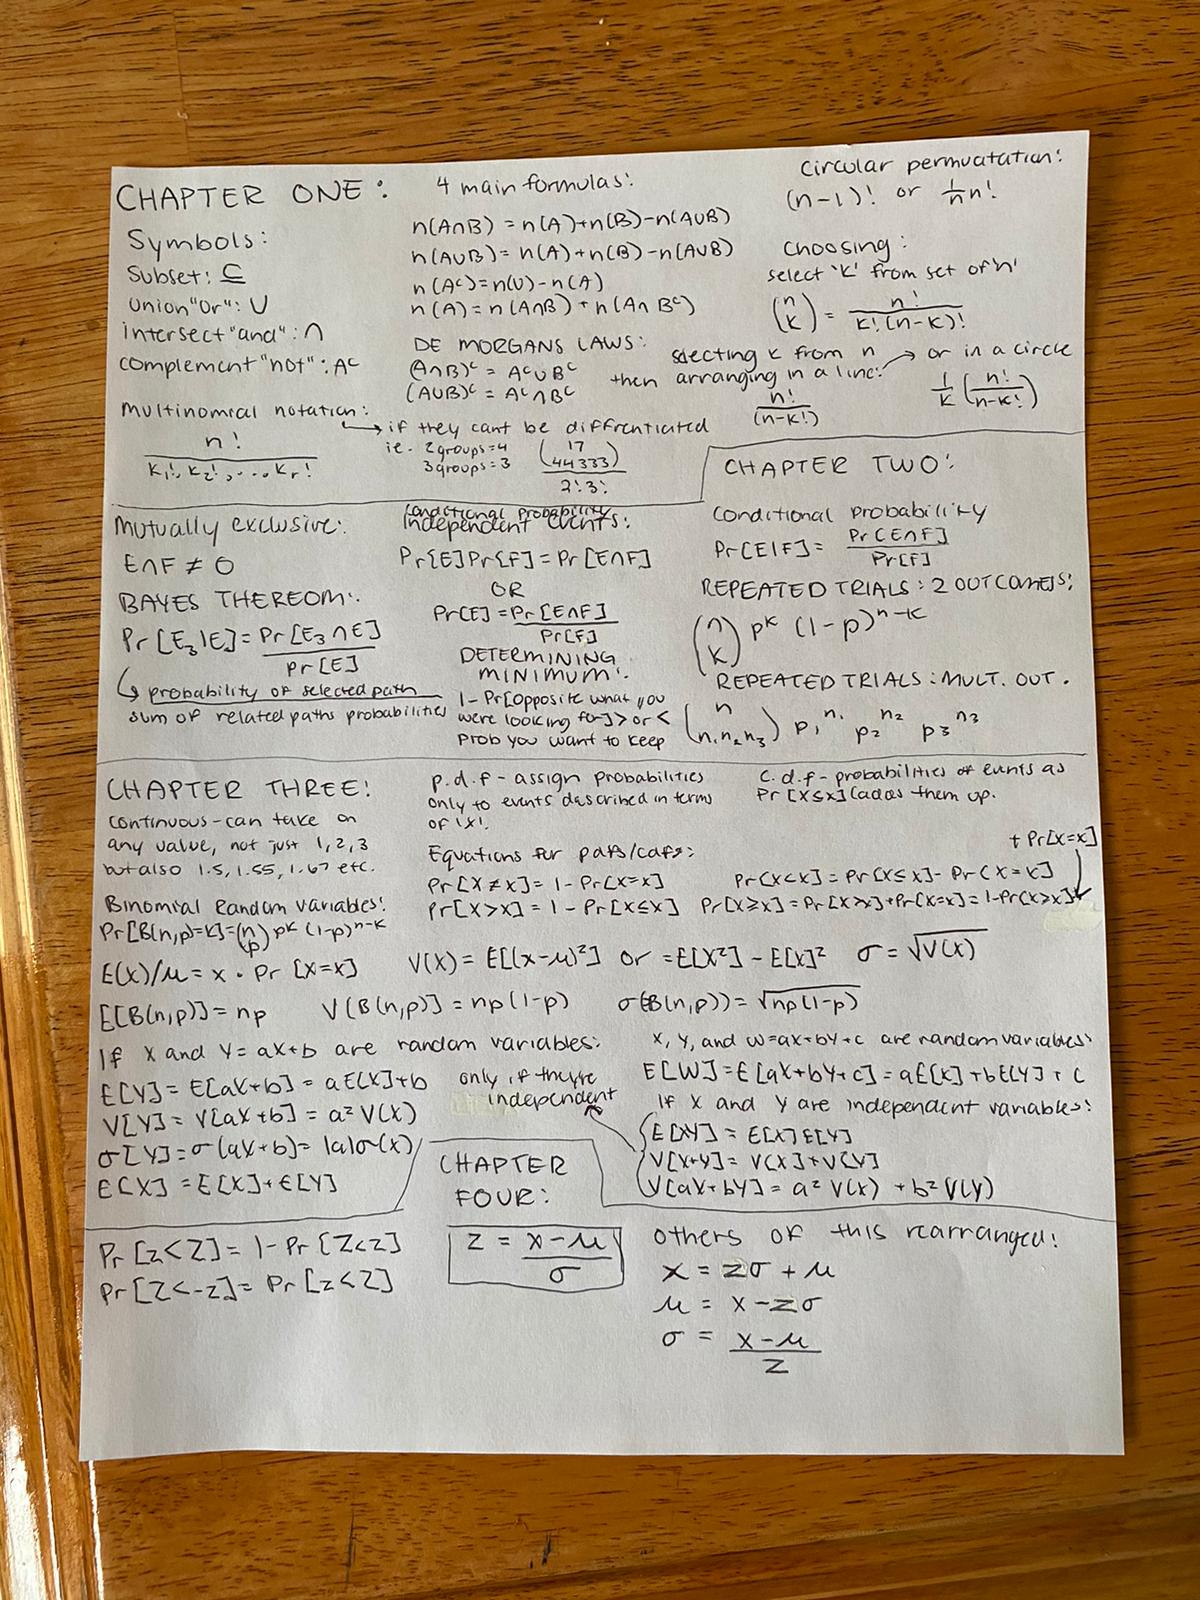 CHAPTER ONE:
Symbols:
Subset: ⊆
Union "or": ∪
intersect "and": ∩
complement "not": Aᶜ
multinomial notation:
n!
k₁!, k₂!, ..., kᵣ!
→ if they cant be diffrentiated
ie. 2 groups = 4
3 groups = 3
(17
44333)
2!3!
4 main formulas:
n(A∩B) = n(A)+n(B)-n(A∪B)
n(A∪B) = n(A)+n(B)-n(A∪B)
n(Aᶜ) = n(U)-n(A)
n(A) = n(A∩B) + n(A∩Bᶜ)
DE MORGANS LAWS:
(A∩B)ᶜ = Aᶜ∪Bᶜ
(A∪B)ᶜ = Aᶜ∩Bᶜ
Circular permuatation:
(n-1)! or 1/n n!
Choosing:
select 'k' from set of 'n'
(n k) = n! / k!(n-k)!
selecting k from n
then arranging in a line:
n!
(n-k!)
→ or in a circle
1/k (n! / n-k!)
CHAPTER TWO:
Mutually exclusive:
E∩F ≠ 0
BAYES THEREOM:
Pr[E₃|E] = Pr[E₃∩E] / Pr[E]
↳ probability of selected path
sum of related paths probabilities
Independent events:
Pr[E]Pr[F] = Pr[E∩F]
OR
Pr[E] = Pr[E∩F] / Pr[F]
DETERMINING
MINIMUM:
1 - Pr[opposite what you
were looking for] > or <
prob you want to keep
Conditional Probability
Pr[E|F] = Pr[E∩F] / Pr[F]
REPEATED TRIALS: 2 OUTCOMES:
(n k) pᵏ (1-p)ⁿ⁻ᵏ
REPEATED TRIALS: MULT. OUT.
(n n₁n₂n₃) p₁ⁿ¹ p₂ⁿ² p₃ⁿ³
CHAPTER THREE:
continuous - can take on
any value, not just 1, 2, 3
but also 1.5, 1.55, 1.67 etc.
p.d.f - assign probabilities
only to events described in terms
of 'x'.
c.d.f - probabilities of events as
Pr[X≤x] (adds them up.
Equations for pdfs/cdfs:
Pr[X≠x] = 1-Pr[X=x]
Pr[X>x] = 1-Pr[X≤x]
Pr[X<x] = Pr[X≤x] - Pr[X=x]
Pr[X≥x] = Pr[X>x]+Pr[X=x] = 1-Pr[X>x]
+ Pr[X=x]
Binomial Random variables:
Pr[B(n,p)=k] = (n p) pᵏ (1-p)ⁿ⁻ᵏ
E(x)/μ = x · Pr [X=x]
V(X) = E[(x-μ)²] or = E[X²] - E[X]² σ = √V(X)
E[B(n,p)] = np V(B(n,p)] = np(1-p) σ(B(n,p)) = √np(1-p)
If X and Y = aX+b are random variables:
E[Y] = E[aX+b] = aE[X]+b
V[Y] = V[aX+b] = a²V(X)
σ[Y] = σ(aX+b) = |a|σ(x)
E[X] = E[X]+E[Y]
only if they're
independent
X, Y, and W=aX+bY+c are random variables:
E[W] = E[aX+bY+c] = aE[X]+bE[Y]+c
If X and Y are independent variables:
E[XY] = E[X]E[Y]
V[X+Y] = V[X]+V[Y]
V[aX+bY] = a²V(X) + b²V(Y)
CHAPTER
FOUR:
Pr[z<Z] = 1-Pr[Z<z]
Pr[Z<-z] = Pr[z<Z]
z = x-μ / σ
others of this rearranged:
x = zσ + μ
μ = x - zσ
σ = x-μ / z